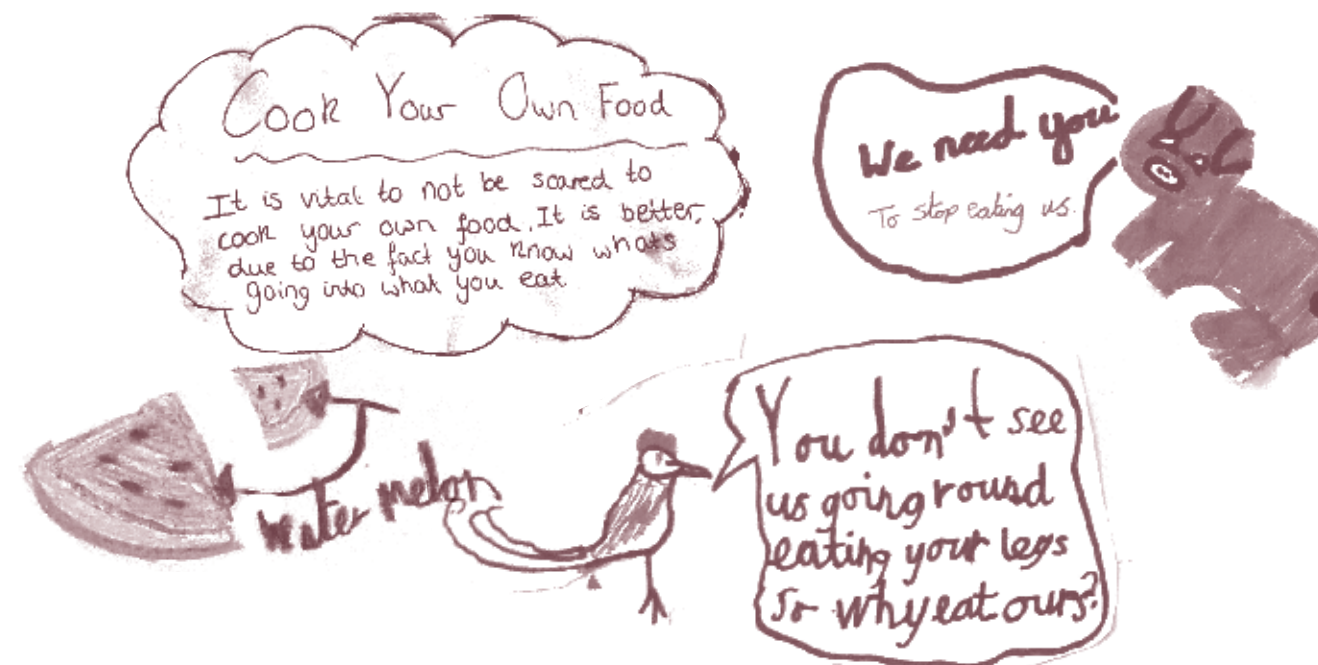 Cook Your Own Food
It is vital to not be scared to
cook your own food. It is better,
due to the fact you know whats
going into what you eat
We need you
To stop eating us.
Water melon
You don't see
us going round
eating your legs
so why eat ours?